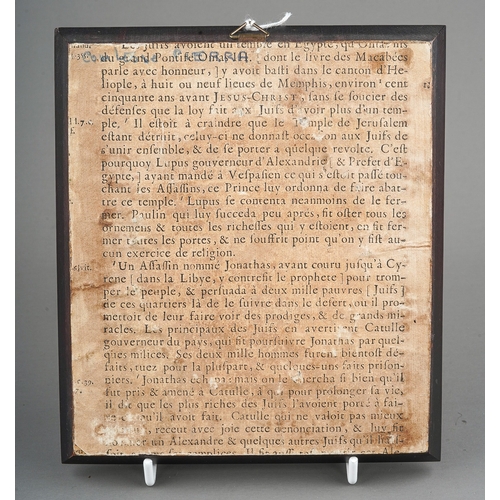 Les Juifs avoient un temple en Egypte, qu'Onias fils
du grand Pontife Onias, dont le livre des Macabées
parle avec honneur, ] y avoit basti dans le canton d'He-
liople, à huit ou neuf lieues de Memphis, environ cent
cinquante ans avant JESUS-CHRIST, sans se soucier des
défenses que la loy fait aux Juifs de voir plus d'un tem-
ple. Il estoit à craindre que le Temple de Jerusalem
estant détruit, celuy-ci ne donnast occasion aux Juifs de
s'unir ensemble, & de se porter a quelque revolte. C'est
pourquoy Lupus gouverneur d'Alexandrie [ & Prefet d'E-
gypte, ] ayant mandé à Vespasien ce qui s'estoit passé tou-
chant les Assassins, ce Prince luy ordonna de faire abat-
tre ce temple. Lupus se contenta neanmoins de le fer-
mer. Paulin qui luy succeda peu après, fit oster tous les
ornemens & toutes les richesses qui y estoient, en fit fer-
mer toutes les portes, & ne souffrit point qu'on y fist au-
cun exercice de religion.
Un Assassin nommé Jonathas, avant couru jusqu'à Cy-
rene [ dans la Libye, y contrefit le prophete ] pour trom-
per le peuple, & persuada à deux mille pauvres [ Juifs ]
de ces quartiers là de le suivre dans le desert, ou il pro-
mettoit de leur faire voir des prodiges, & de grands mi-
racles. Les principaux des Juifs en avertirent Catulle
gouverneur du pays, qui fit poursuivre Jonathas par quel-
ques milices. Ses deux mille hommes furent bientost dé-
faits, tuez pour la pluspart, & quelques-uns faits prison-
niers. Jonathas échapa: mais on le chercha si bien qu'il
fut pris & amené à Catulle, à qui pour prolonger sa vie,
il dit que les plus riches des Juifs l'avoient porté à fai-
re ce qu'il avoit fait. Catulle qui ne valoit pas mieux
receut avec joie cette dénonciation, & luy fit
nommer un Alexandre & quelques autres Juifs qu'il
complices. Il fit aussi